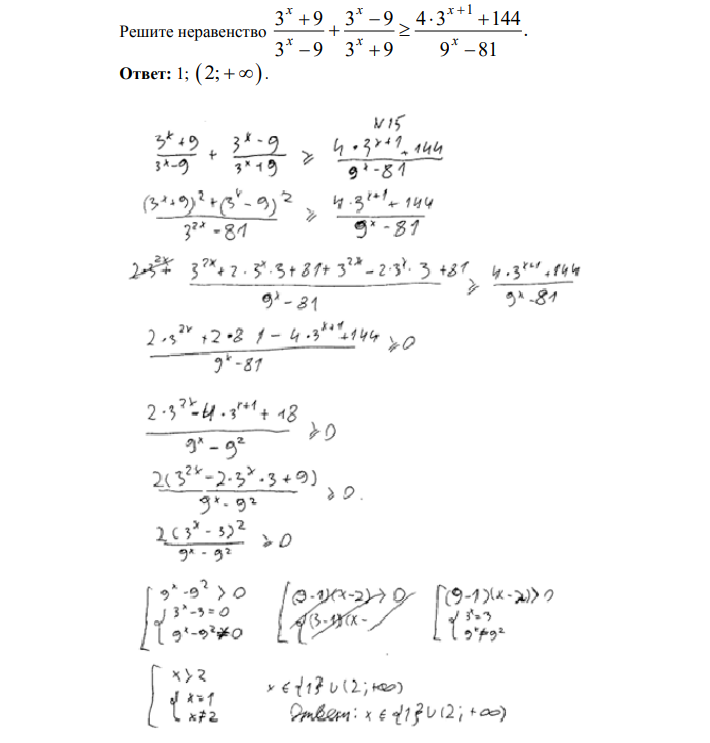 Решите неравенство (3^x + 9)/(3^x − 9) + (3^x − 9)/(3^x + 9) ≥ (4·3^(x+1) + 144)/(9^x − 81).
Ответ: 1; (2; +∞).
N15
(3^x+9)/(3^x−9) + (3^x−9)/(3^x+9) ≥ (4·3^(x+1)+144)/(9^x−81)
((3^x+9)^2+(3^x−9)^2)/(3^(2x)−81) ≥ (4·3^(x+1)+144)/(9^x−81)
(3^(2x)+2·3^x·3+81+3^(2x)−2·3^x·3+81)/(9^x−81) ≥ (4·3^(x+1)+144)/(9^x−81)
(2·3^(2x)+2·81−4·3^(x+1)+144)/(9^x−81) ≥ 0
(2·3^(2x)−4·3^(x+1)+18)/(9^x−9^2) ≥ 0
2(3^(2x)−2·3^x·3+9)/(9^x−9^2) ≥ 0.
2(3^x−3)^2/(9^x−9^2) ≥ 0
[ 9^x−9^2>0 [ (9-1)(x-2)>0 [ (9-1)(x-2)>0
{ 3^x−3=0 { (3-1)(x- { 3^x=3
9^x−9^2≠0 9^x≠9^2
[ x>2
{ x=1 x∈{1}∪(2;+∞)
x≠2 Ответ: x∈{1}∪(2;+∞)